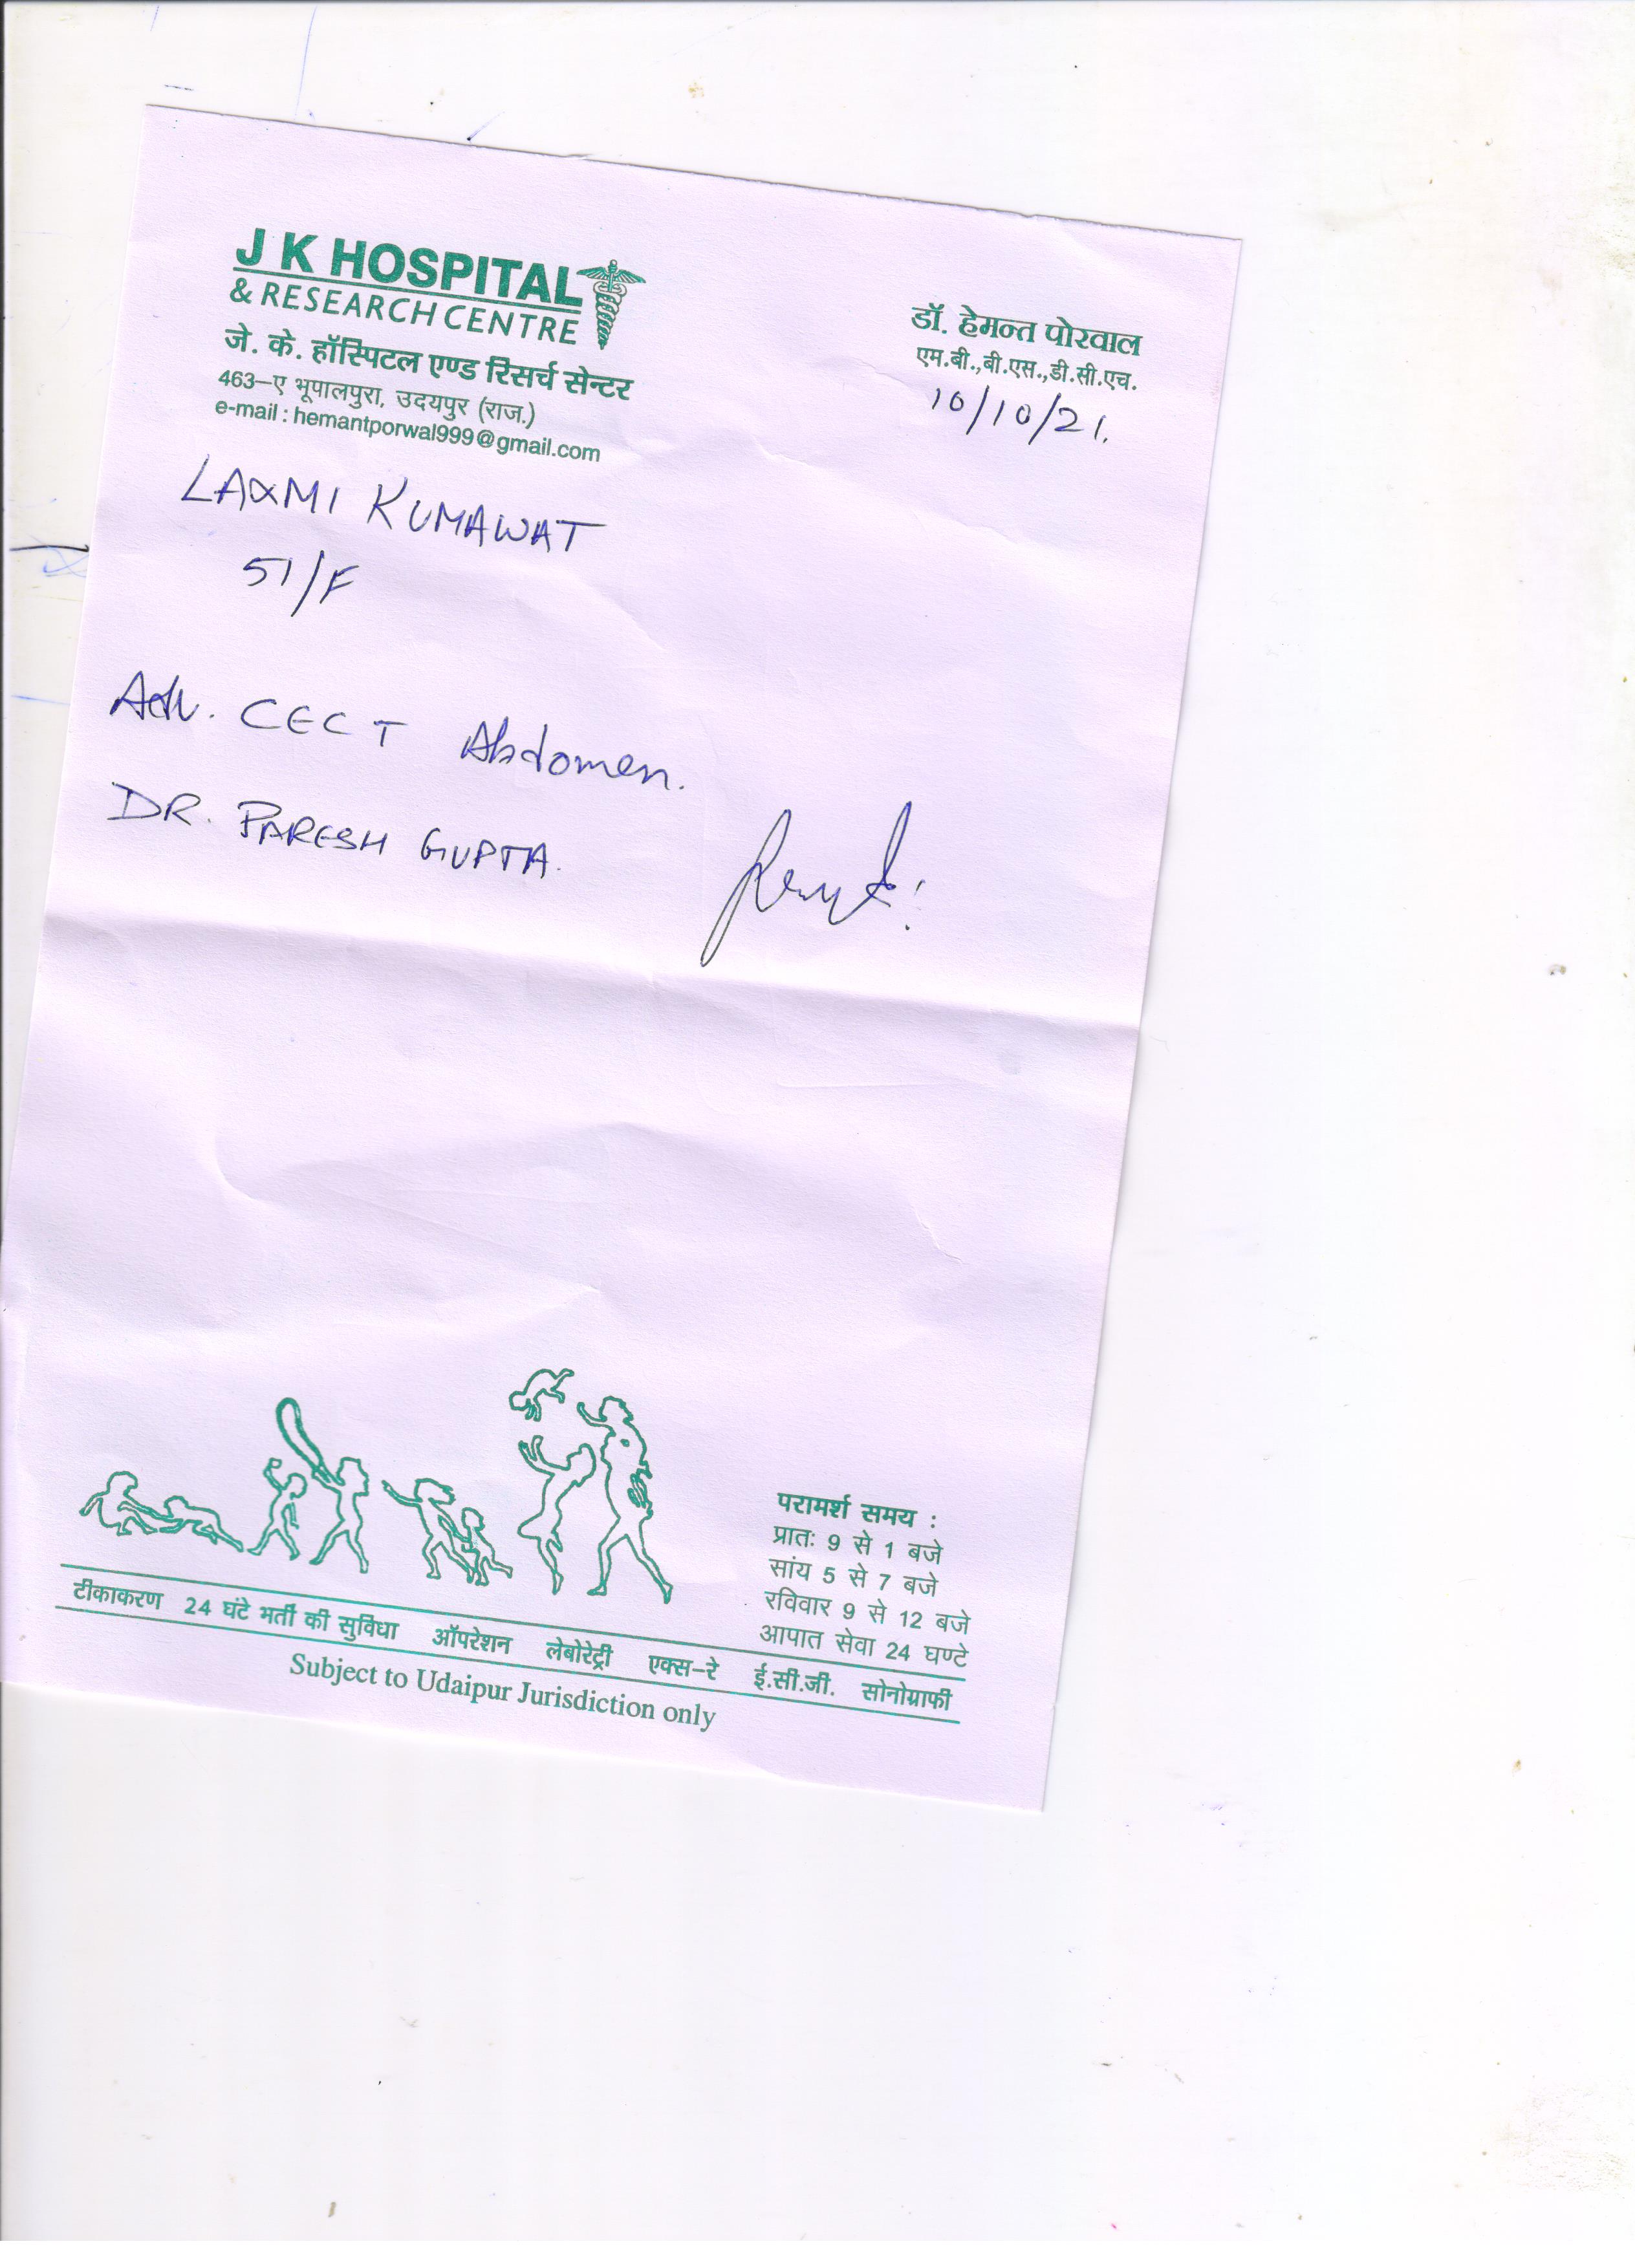 J K HOSPITAL
& RESEARCH CENTRE
जे. के. हॉस्पिटल एण्ड रिसर्च सेन्टर
463–ए भूपालपुरा, उदयपुर (राज.)
e-mail : hemantporwal999@gmail.com
डॉ. हेमन्त पोरवाल
एम.बी.,बी.एस.,डी.सी.एच.
10/10/21.
LAXMI KUMAWAT
51/F
Adv. CECT Abdomen.
DR. PARESH GUPTA.
परामर्श समय :
प्रातः 9 से 1 बजे
सांय 5 से 7 बजे
रविवार 9 से 12 बजे
आपात सेवा 24 घण्टे
टीकाकरण 24 घंटे भर्ती की सुविधा ऑपरेशन लेबोरेट्री एक्स–रे ई.सी.जी. सोनोग्राफी
Subject to Udaipur Jurisdiction only